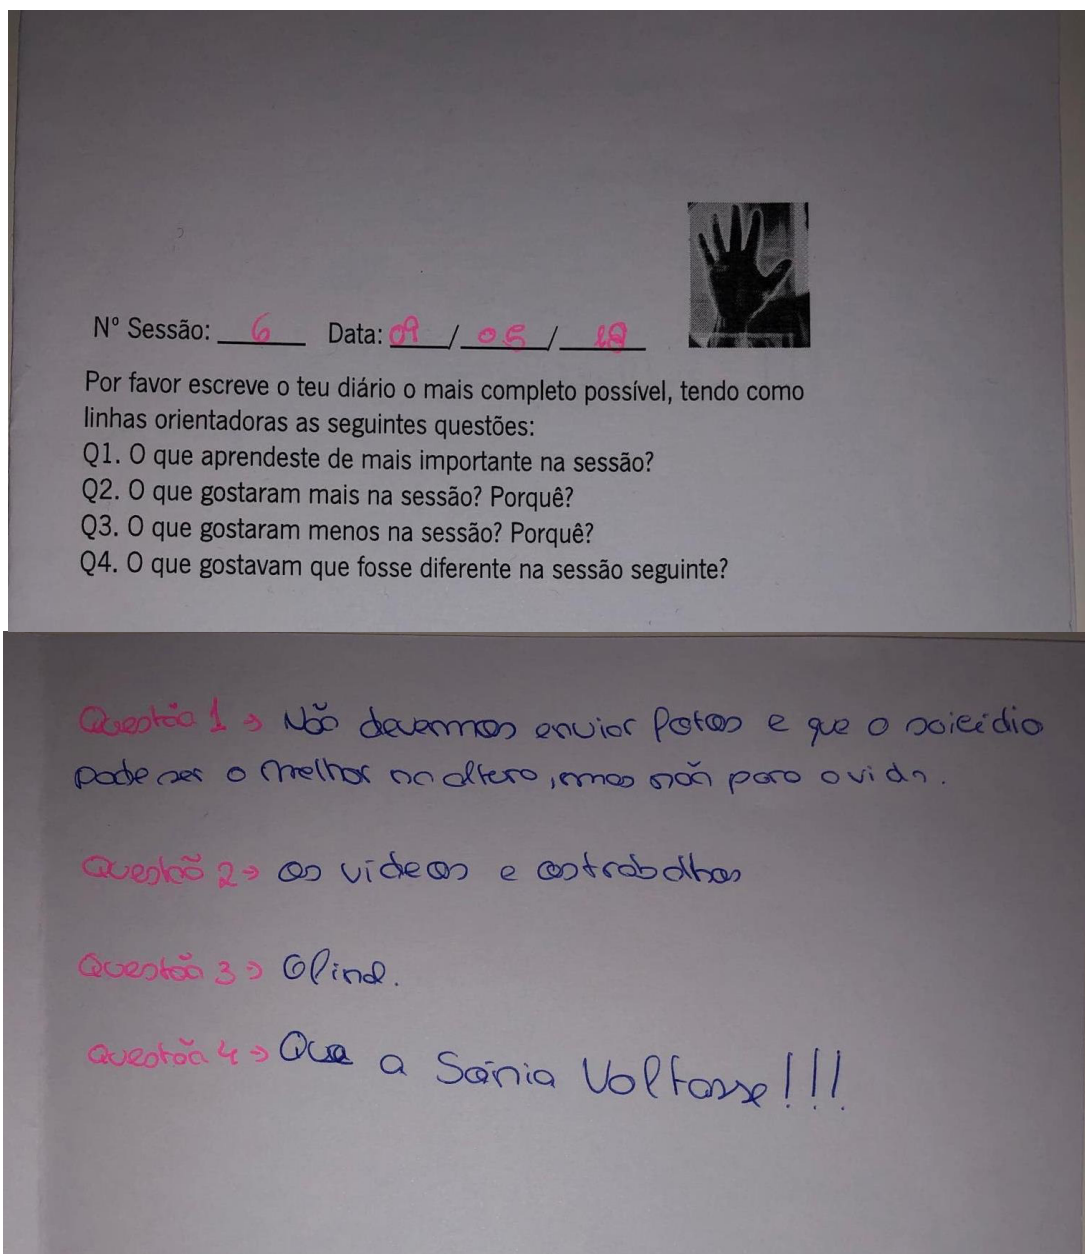 Nº Sessão: 6 Data: 09 / 05 / 18
Por favor escreve o teu diário o mais completo possível, tendo como
linhas orientadoras as seguintes questões:
Q1. O que aprendeste de mais importante na sessão?
Q2. O que gostaram mais na sessão? Porquê?
Q3. O que gostaram menos na sessão? Porquê?
Q4. O que gostavam que fosse diferente na sessão seguinte?
Questão 1 → Não devermos enviar fotos e que o soicídio
pode ser o melhor na altero, mas não para a vida.
Questão 2 → os vídeos e os trabalhos
Questão 3 →
Questão 4 → Que a Sónia Voltasse!!!